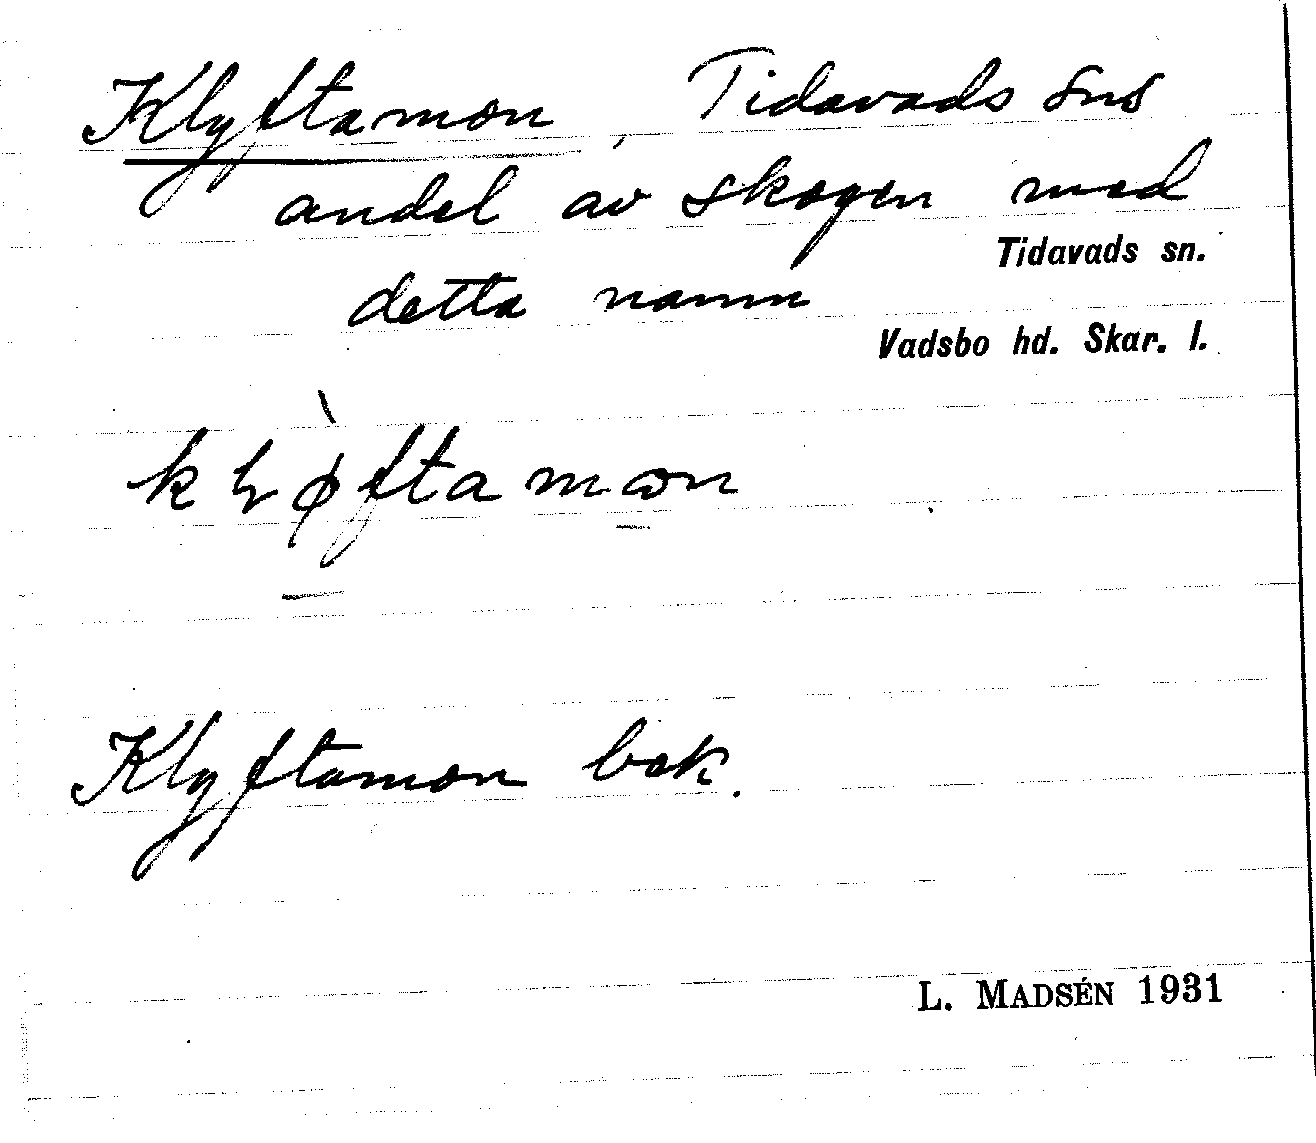 Klyftamon, Tidavads sns
andel av skogen med
Tidavads sn.
detta namn
Vadsbo hd. Skar. l.
Klyftamon bok.
L. MADSÉN 1931